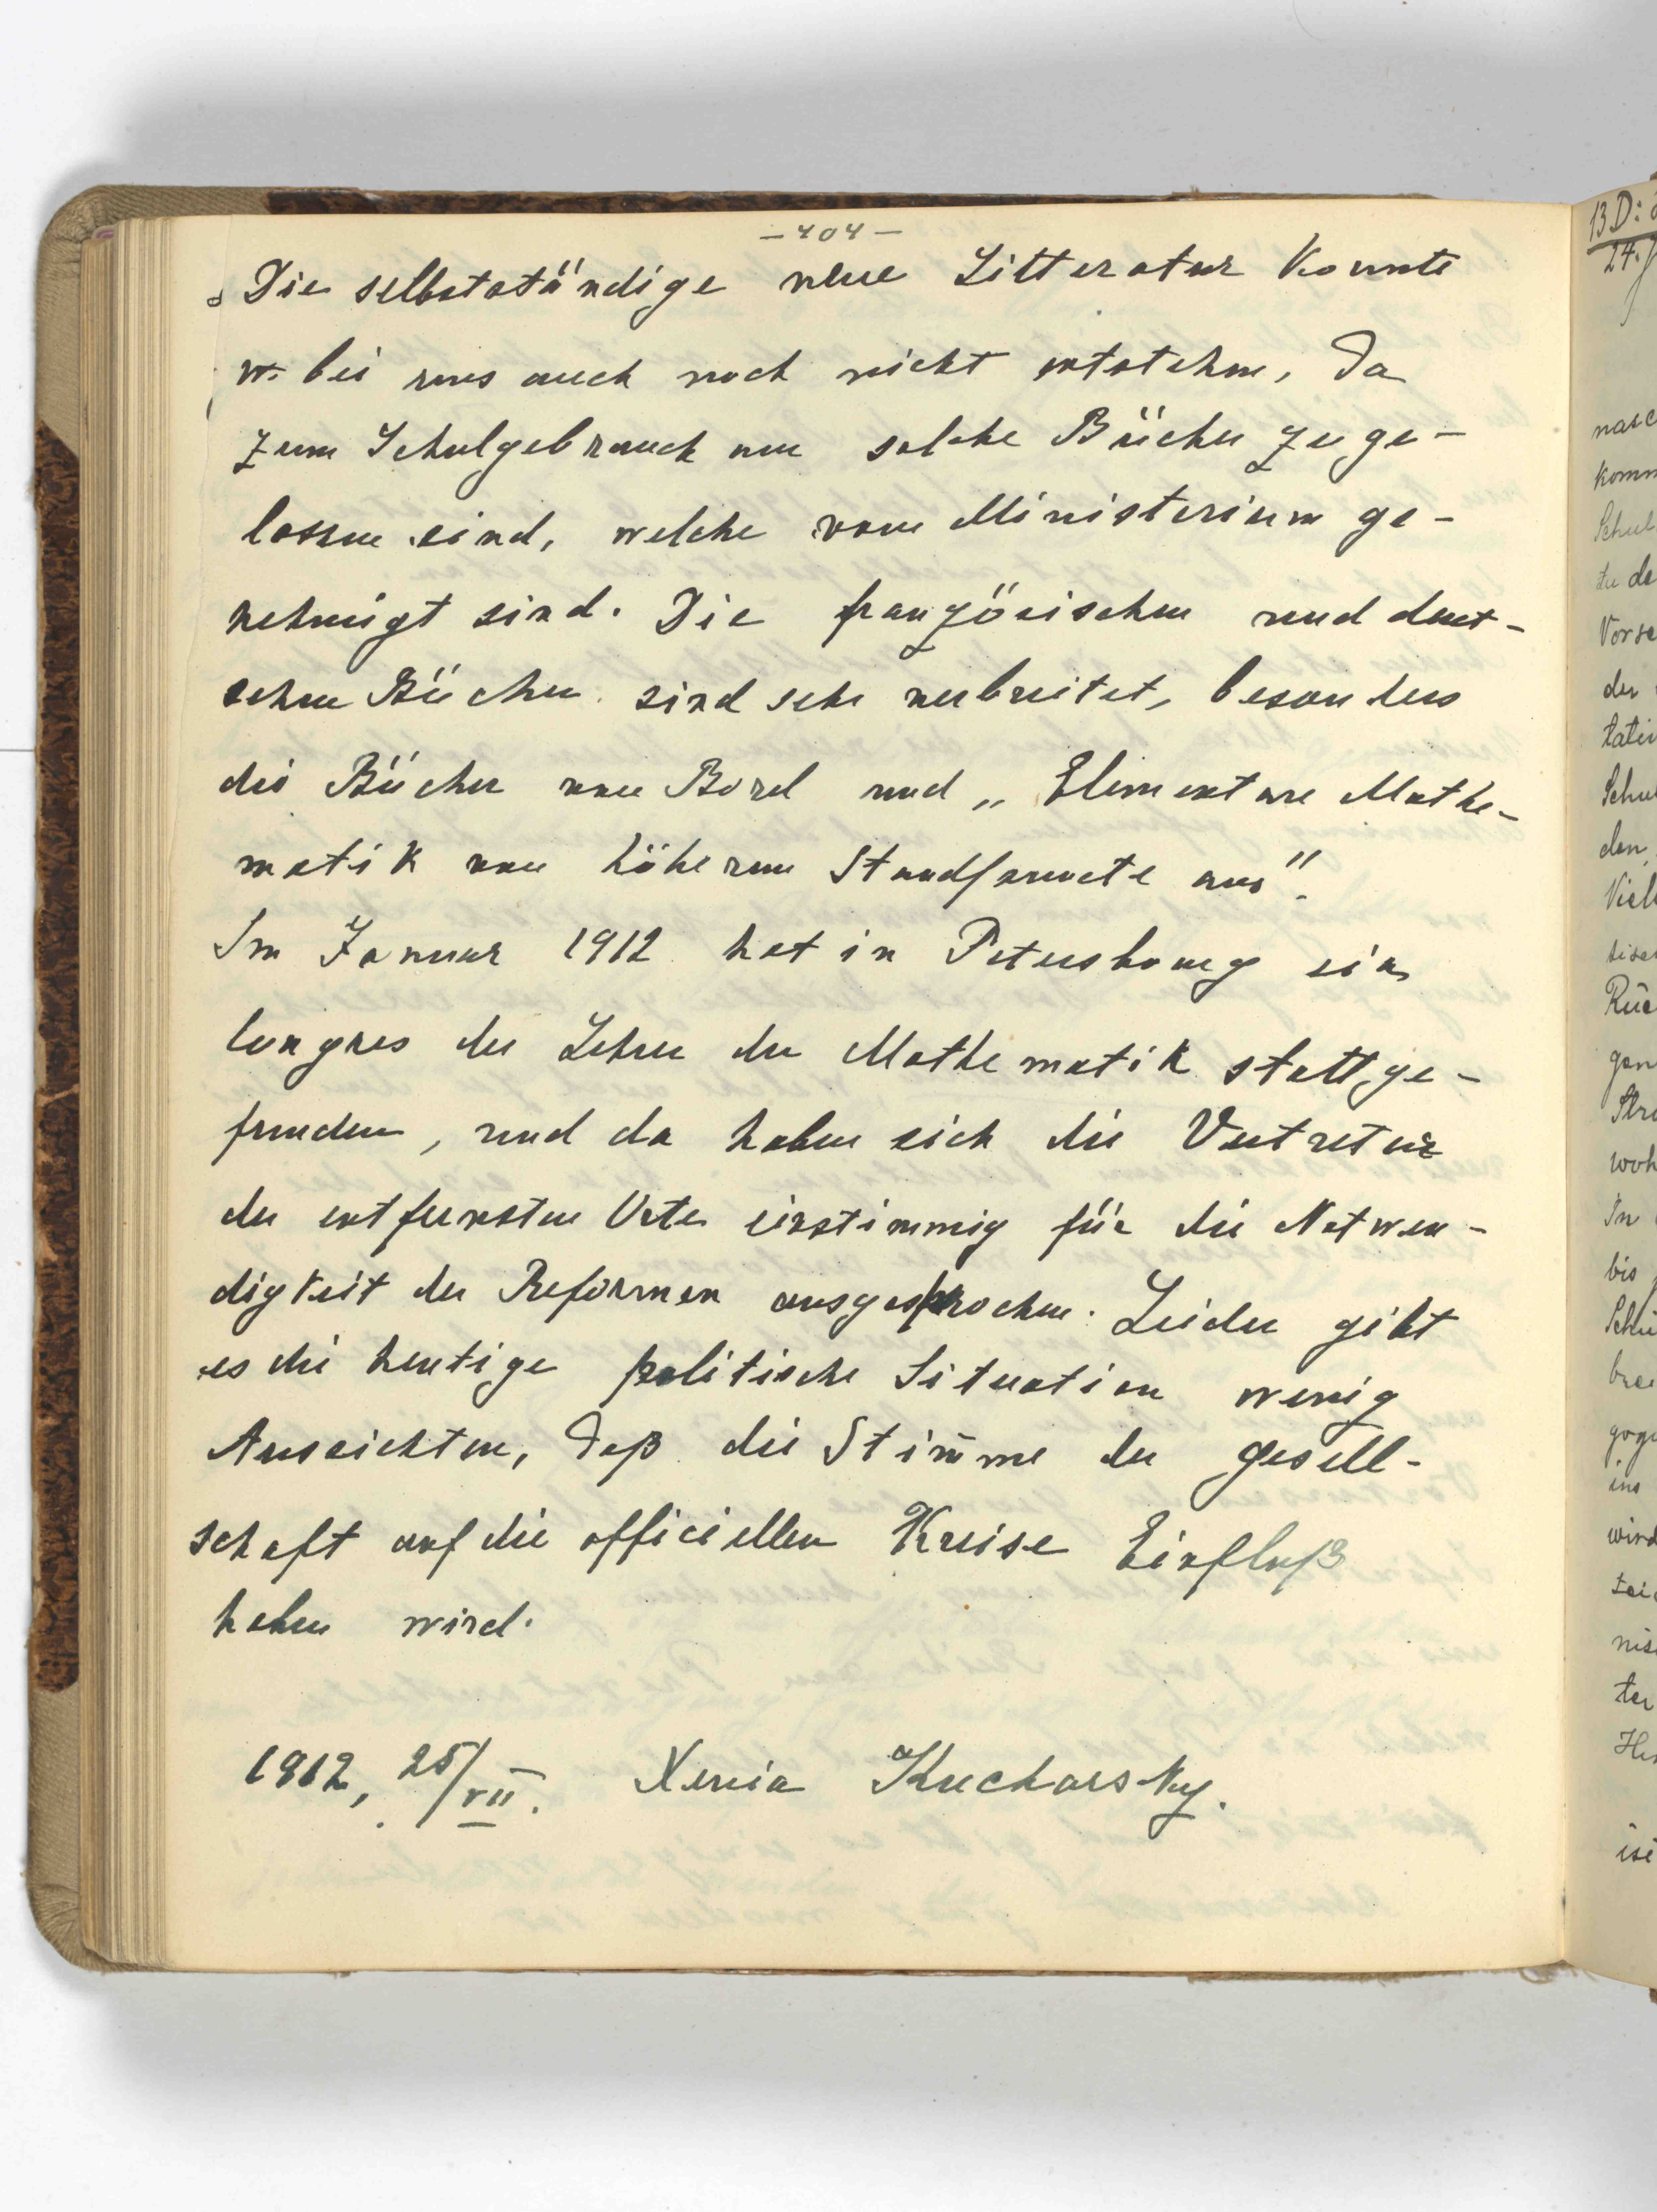 -404-
Die selbstständige neue Litteratur konnte
bei uns auch noch nicht entstehen, da
zum Schulgebrauch nur solche Bücher zuge-
lassen sind, welche vom Ministerium ge-
nehmigt sind. Die französischen und deut-
schen Bücher sind sehr verbreitet, besonders
die Bücher von Borel und „Elementare Mathe-
matik von höheren Standpunkte aus".
Im Januar 1912 hat in Petersbourg ein
Congres der Lehrer der Mathematik stattge-
funden, und da haben sich die Vertreter
der entfernsten Orte einstimmig für die Notwen-
digkeit der Reformen ausgesprochen. Leider gibt
es die heutige politische Situation wenig
Aussichten, daß die Stimme der Gesell-
schaft auf die officiellen Kreise Einfluß
haben wird.
1912, 25/VII. Xenia Kucharsky.
13 D:
24.
komm
Schul
zu de
Vorse
der
latei
Schul
den
Viel
Rüc
gen
woh
In
bis
Schü
ins
wird
nis
ter
ist